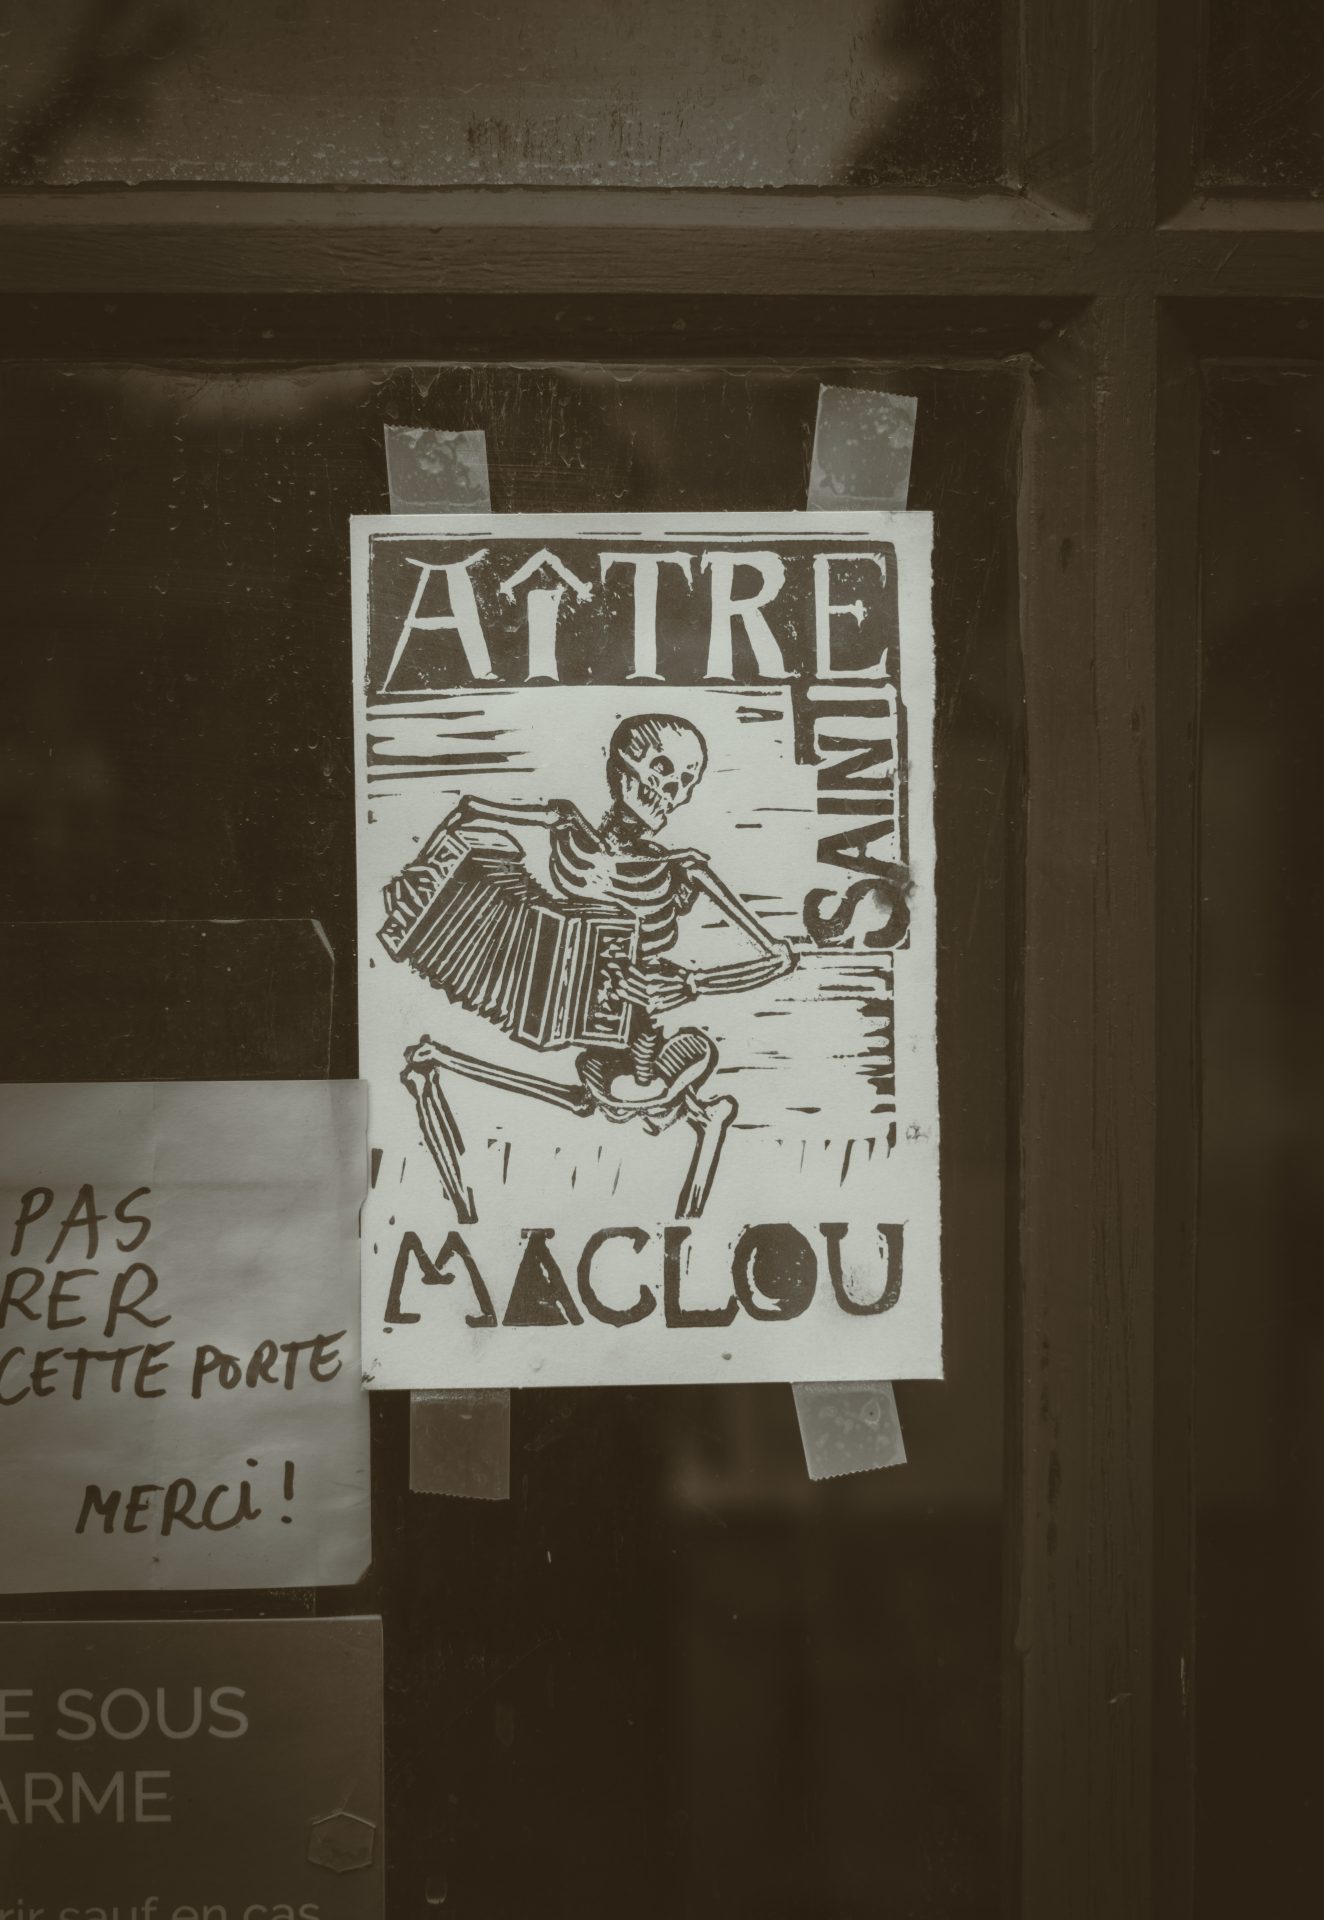 AÎTRE
SAINT
MACLOU
PAS
RER
CETTE PORTE
MERCi !
E SOUS
ARME
rir sauf en cas